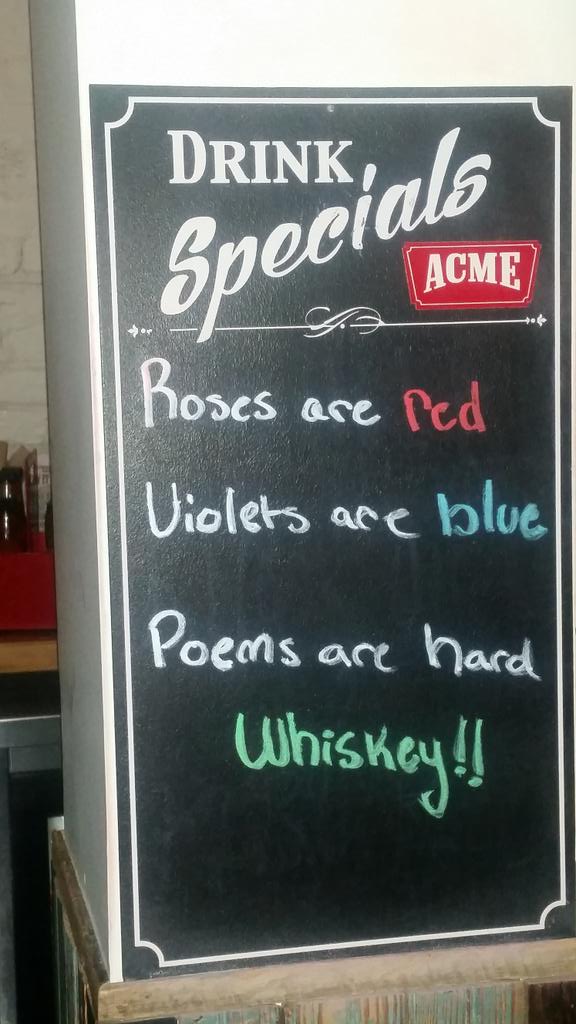 DRINK
Specials
ACME
Roses are red
Violets are blue
Poems are hard
Whiskey!!